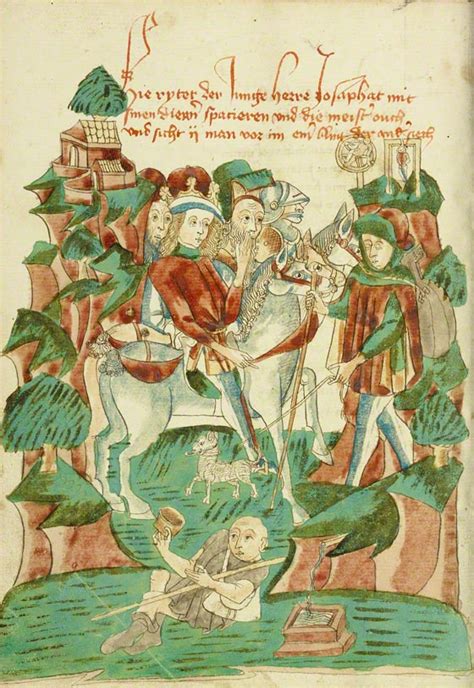 Hie rytet der Junge herre Josaphat mit
sinen diewn spacieren vnd die meister ouch
vnd sicht ij man vor im ein bling der and